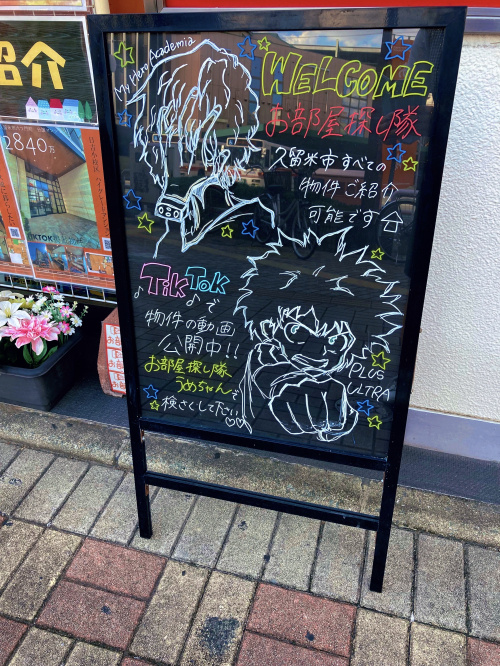 紹介
2840万
TIKTOK
My Hero Academia
WELCOME
お部屋探し隊
久留米市すべての
物件ご紹介
可能です
TikTok
♪で
物件の動画
公開中!!
お部屋探し隊
うめちゃんで
検さくして下さい
PLUS
ULTRA